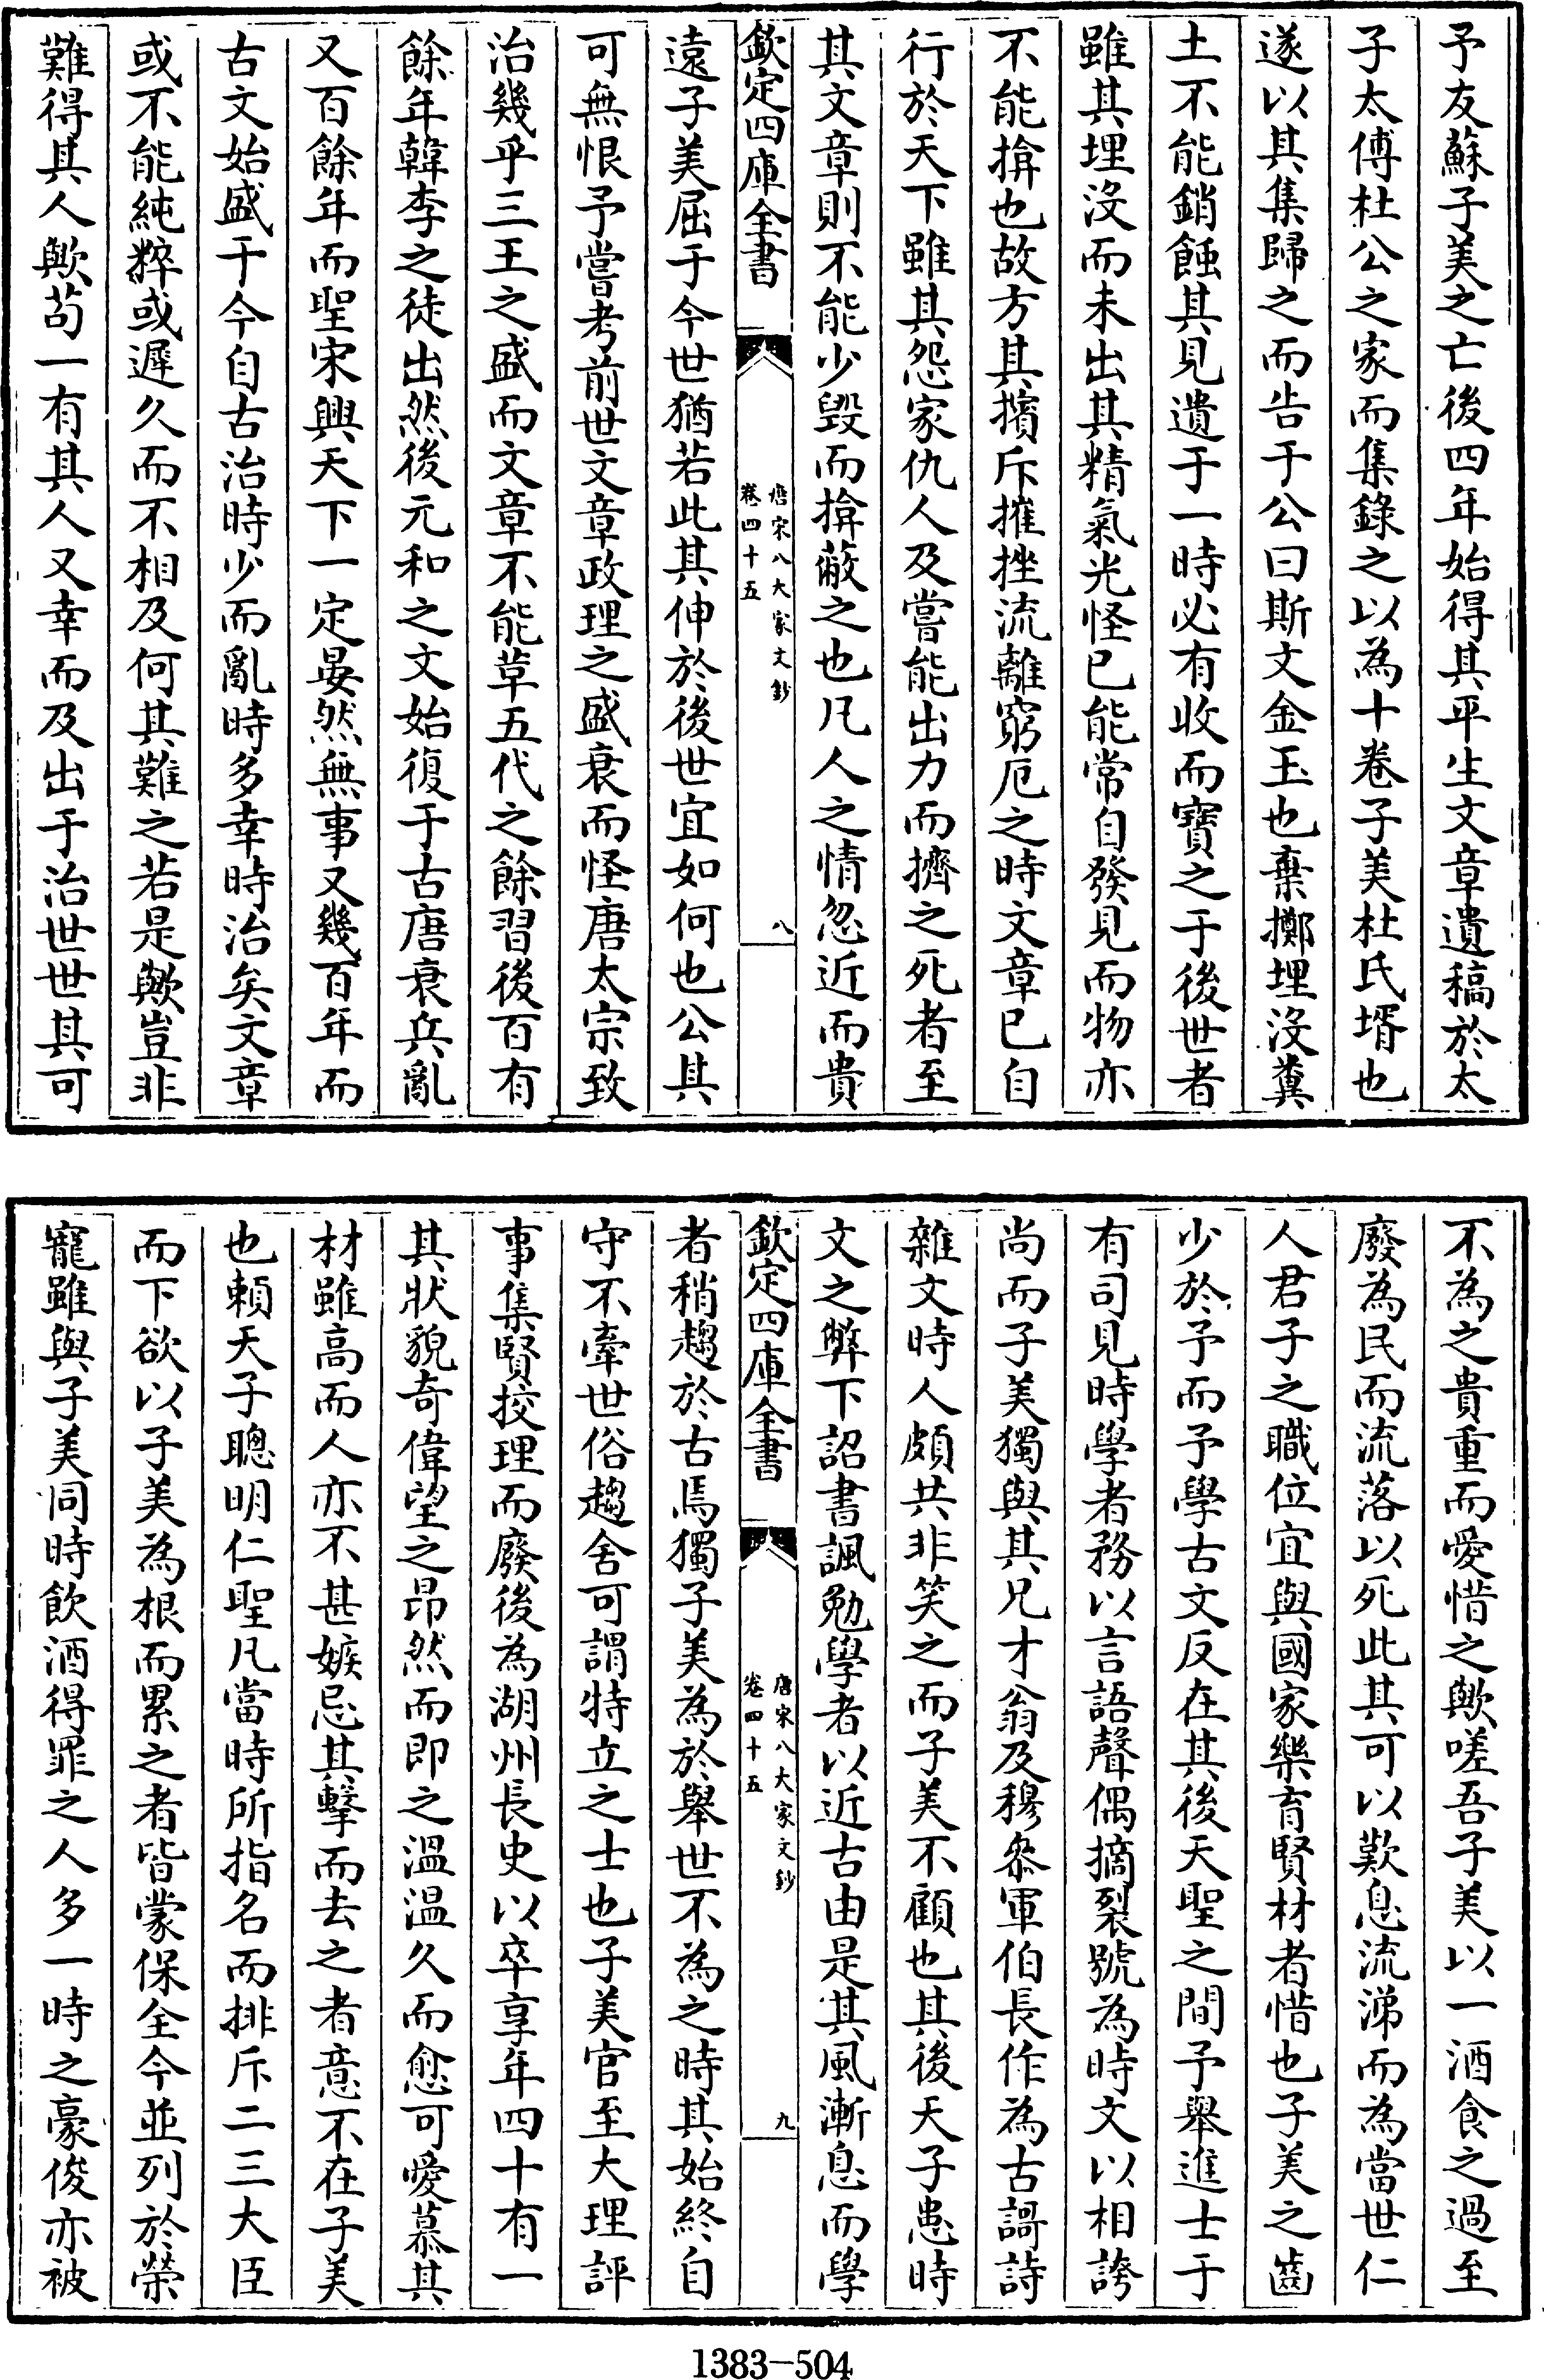 予友蘇子美之亡後四年始得其平生文章遺稿於太
子太傅杜公之家而集錄之以為十卷子美杜氏壻也
遂以其集歸之而告于公曰斯文金玉也棄擲埋沒糞
土不能銷蝕其見遺于一時必有收而寶之于後世者
雖其埋沒而未出其精氣光怪已能常自發見而物亦
不能揜也故方其擯斥摧挫流離窮厄之時文章已自
行於天下雖其怨家仇人及嘗能出力而擠之死者至
其文章則不能少毀而揜蔽之也凡人之情忽近而貴
欽定四庫全書
唐宋八大家文鈔
卷四十五
八
遠子美屈于今世猶若此其伸於後世宜如何也公其
可無恨予嘗考前世文章政理之盛衰而怪唐太宗致
治幾乎三王之盛而文章不能革五代之餘習後百有
餘年韓李之徒出然後元和之文始復于古唐衰兵亂
又百餘年而聖宋興天下一定晏然無事又幾百年而
古文始盛于今自古治時少而亂時多幸時治矣文章
或不能純粹或遲久而不相及何其難之若是歟豈非
難得其人歟苟一有其人又幸而及出于治世世其可
不為之貴重而愛惜之歟嗟吾子美以一酒食之過至
廢為民而流落以死此其可以歎息流涕而為當世仁
人君子之職位宜與國家樂育賢材者惜也子美之齒
少於予而予學古文反在其後天聖之間予舉進士于
有司見時學者務以言語聲偶摘裂號為時文以相誇
尚而子美獨與其兄才翁及穆叅軍伯長作為古謌詩
雜文時人頗共非笑之而子美不顧也其後天子患時
文之弊下詔書諷勉學者以近古由是其風漸息而學
欽定四庫全書
唐宋八大家文鈔
卷四十五
九
者稍趨於古焉獨子美為於舉世不為之時其始終自
守不牽世俗趨舍可謂特立之士也子美官至大理評
事集賢挍理而廢後為湖州長史以卒享年四十有一
其狀貌奇偉望之昂然而即之溫溫久而愈可愛慕其
材雖高而人亦不甚嫉忌其擊而去之者意不在子美
也賴天子聰明仁聖凡當時所指名而排斥二三大臣
而下欲以子美為根而累之者皆蒙保全今並列於榮
寵雖與子美同時飲酒得罪之人多一時之豪俊亦被
1383-504